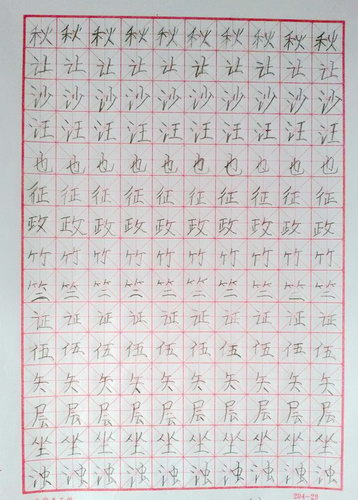 秋秋秋秋秋秋秋秋秋秋
让让让让让让让让让让
沙沙沙沙沙沙沙沙沙沙
汪汪汪汪汪汪汪汪汪汪
也也也也也也也也也也
征征征征征征征征征征
政政政政政政政政政政
竹竹竹竹竹竹竹竹竹竹
竺竺竺竺竺竺竺竺竺竺
证证证证证证证证证证
伍伍伍伍伍伍伍伍伍伍
矢矢矢矢矢矢矢矢矢矢
层层层层层层层层层层
坐坐坐坐坐坐坐坐坐坐
浊浊浊浊浊浊浊浊浊浊